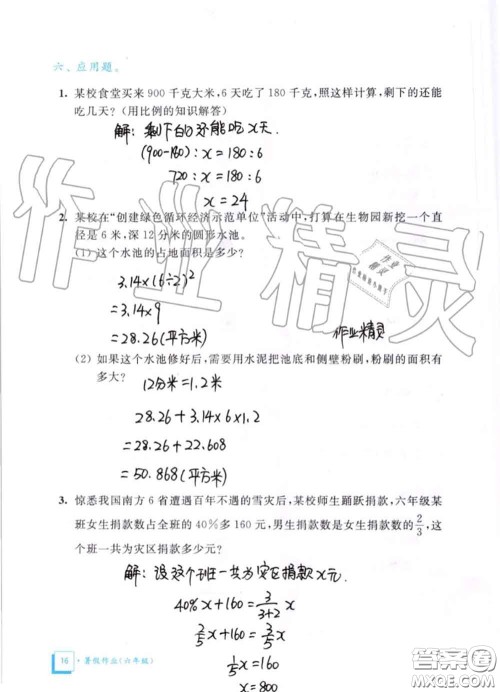 六、应用题。
1. 某校食堂买来 900 千克大米,6 天吃了 180 千克,照这样计算,剩下的还能
吃几天?(用比例的知识解答)
解:剩下的还能吃x天.
(900-180):x=180:6
720:x=180:6
x=24
2. 某校在“创建绿色循环经济示范单位”活动中,打算在生物园新挖一个直
径是 6 米,深 12 分米的圆形水池。
(1) 这个水池的占地面积是多少?
3.14×(6÷2)²
=3.14×9
=28.26(平方米)
作业精灵
(2) 如果这个水池修好后,需要用水泥把池底和侧壁粉刷,粉刷的面积有
多大?
12分米=1.2米
28.26+3.14×6×1.2
=28.26+22.608
=50.868(平方米)
3. 惊悉我国南方 6 省遭遇百年不遇的雪灾后,某校师生踊跃捐款,六年级某
班女生捐款数占全班的 40%多 160 元,男生捐款数是女生捐款数的 2/3,这
个班一共为灾区捐款多少元?
解:设这个班一共为灾区捐款x元.
40%x+160=3/(3+2)x
2/5x+160=3/5x
1/5x=160
x=800
16 · 暑假作业(六年级)
作业精灵
答案圈
MXQE.COM